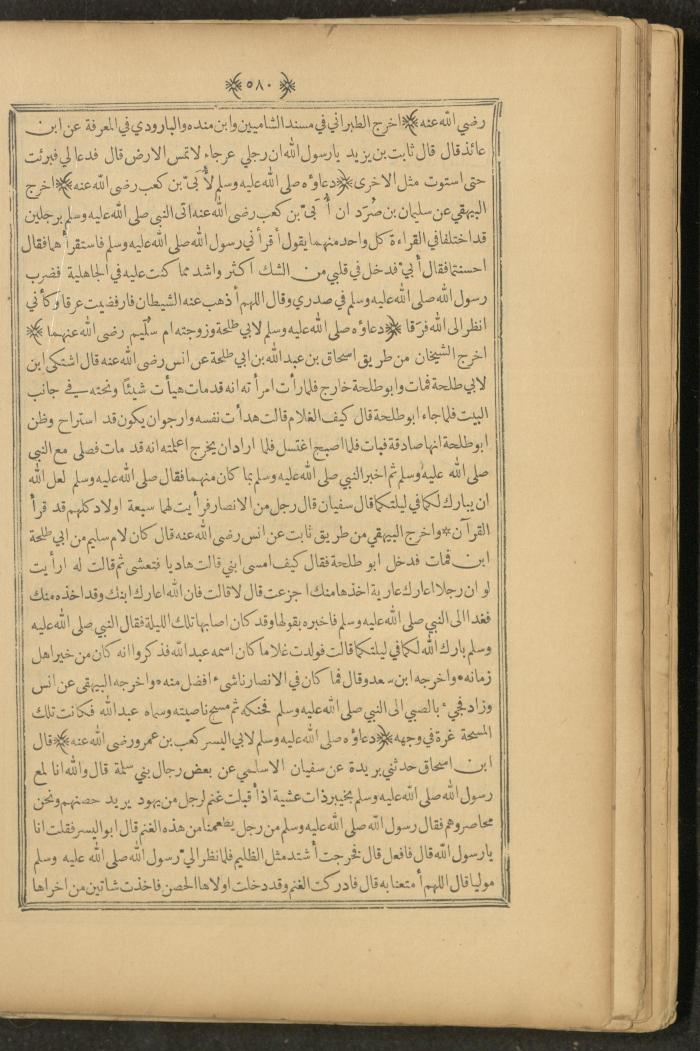 ٥٨٠
رضي الله عنه اخرج الطبراني في مسند الشاميين وابن منده والبارودي في المعرفة عن ابن
عائذ قال قال ثابت بن يزيد يا رسول الله ان رجلي عرجاء لا تمس الارض قال فدعا لي فبرئت
حتى استوت مثل الاخرى دعاؤه صلى الله عليه وسلم لأُبَيّ بن كعب رضى الله عنه اخرج
البيهقي عن سليمان بن صُرَد ان أُبَيّ بن كعب رضى الله عنه اتى النبي صلى الله عليه وسلم برجلين
قد اختلفا في القراءة كل واحد منهما يقول أقرأني رسول الله صلى الله عليه وسلم فاستقرأهما فقال
احسنتما فقال أبي فدخل في قلبي من الشك اكثر واشد مما كنت عليه في الجاهلية فضرب
رسول الله صلى الله عليه وسلم في صدري وقال اللهم أذهب عنه الشيطان فارفضيت عرقا وكأني
انظر الى الله فَرَقا دعاؤه صلى الله عليه وسلم لابي طلحة وزوجته ام سُلَيم رضى الله عنهما
اخرج الشيخان من طريق اسحاق بن عبد الله بن ابي طلحة عن انس رضى الله عنه قال اشتكى ابن
لابي طلحة فمات وابو طلحة خارج فلما رأت امرأته انه قد مات هيأت شيئًا ونحته في جانب
البيت فلما جاء ابو طلحة قال كيف الغلام قالت هدأت نفسه وارجو ان يكون قد استراح وظن
ابو طلحة انها صادقة فبات فلما اصبح اغتسل فلما اراد ان يخرج اعلمته انه قد مات فصلى مع النبي
صلى الله عليه وسلم ثم اخبر النبي صلى الله عليه وسلم بما كان منهما فقال صلى الله عليه وسلم لعل الله
ان يبارك لكما في ليلتكما قال سفيان قال رجل من الانصار فرأيت لهما سبعة اولاد كلهم قد قرأ
القرآن * واخرج البيهقي من طريق ثابت عن انس رضى الله عنه قال كان لام سليم من ابي طلحة
ابن فمات فدخل ابو طلحة فقال كيف امسى ابني قالت هاديا فتعشى ثم قالت له ارأيت
لو ان رجلا اعارك عارية اخذها منك اجزعت قال لا قالت فان الله اعارك ابنك وقد اخذه منك
فغدا الى النبي صلى الله عليه وسلم فاخبره بقولها وقد كان اصابها تلك الليلة فقال النبي صلى الله عليه
وسلم بارك الله لكما في ليلتكما قالت فولدت غلاما كان اسمه عبد الله فذكروا انه كان من خير اهل
زمانه * واخرجه ابن سعد وقال فما كان في الانصار ناشىء افضل منه * واخرجه البيهقي عن انس
وزاد فجيء بالصبي الى النبي صلى الله عليه وسلم فحنكه ثم مسح ناصيته وسماه عبد الله فكانت تلك
المسحة غرة في وجهه دعاؤه صلى الله عليه وسلم لابي اليسر كعب بن عمرو رضى الله عنه قال
ابن اسحاق حدثني بريدة عن سفيان الاسلمي عن بعض رجال بني سلمة قال والله انا لمع
رسول الله صلى الله عليه وسلم بخيبر ذات عشية اذ أقبلت غنم لرجل من يهود يريد حصنهم ونحن
محاصروهم فقال رسول الله صلى الله عليه وسلم من رجل يطعمنا من هذه الغنم قال ابو اليسر فقلت انا
يا رسول الله قال فافعل قال فخرجت أشتد مثل الظليم فلما نظر اليّ رسول الله صلى الله عليه وسلم
موليا قال اللهم أمتعنا به قال فادركت الغنم وقد دخلت اولاها الحصن فاخذت شاتين من اخراها